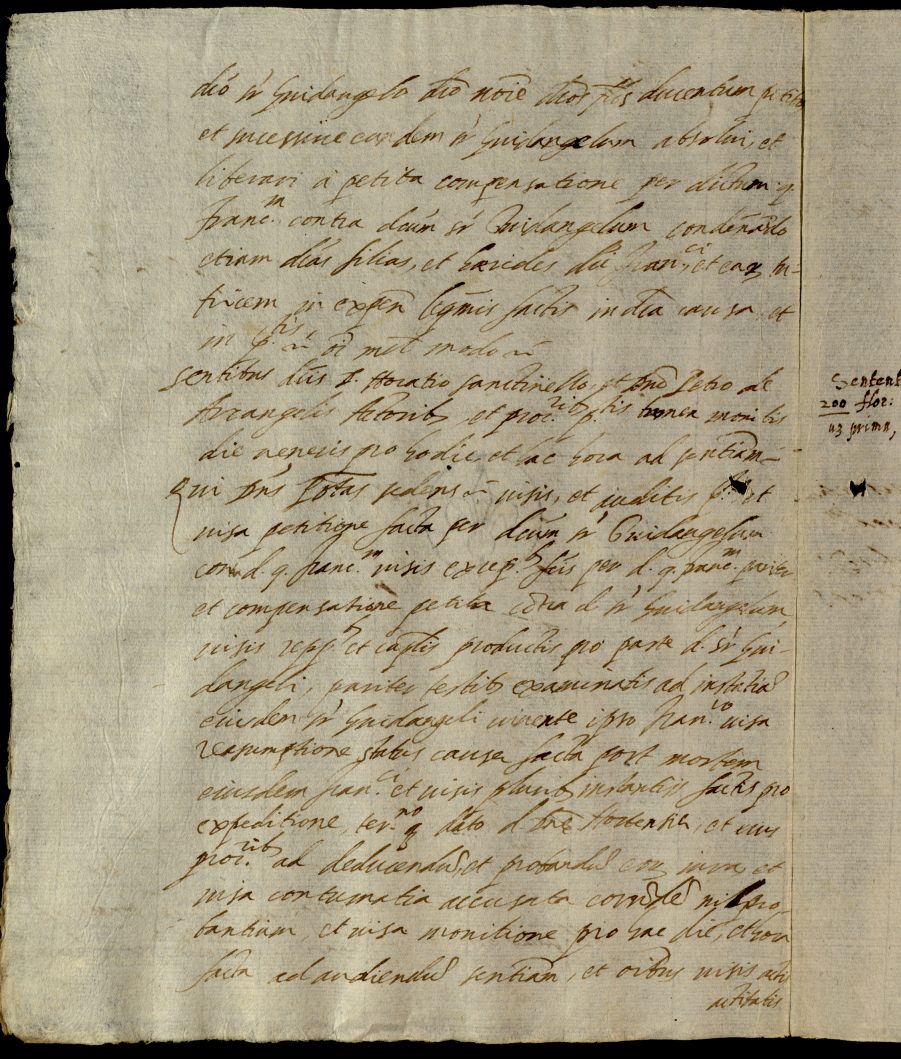 dió sr Guidangelo dto noie dtos flos ducentum petitos
et successive eundem sr Guidangelum absolui, et
liberari à petita compensatione per dictum q.
Franc.m contra dcum sr Guidangelum condénando
etiam dtas filias, et hæredes dti Fran.ci et ear tu-
tricem in expen legmis factis in dta causa, et
in oi mel modo
sentibus dnis D. Horatio Sanctinello, et Petro de
Arcangelis Actorib. et proc.rib. monitis
die veneris pro hodie, et hac hora ad sentiam
Qui Dns Potas sedens visis, et auditis et
visa petitione facta per dcum sr Guidangelum
con. d. q. Franc.m visis excep.b fcis per d. q. Franc.m pariter
et compensatione petita cotra d. sr Guidangelum
visis et caplis productis pro parte d. sr Gui-
dangeli, pariter testib. examinatis ad instatia
eiusdem sr Guidangeli vivente ipso Fran.co visa
reasumptione status causæ facta post mortem
eiusdem Fran.ci et visis plurib. instantiis factis pro
expeditione, ter.no dato d. Hortensiæ, et eius
proc.rib. ad deducendu, et probandu eor iura, et
visa contumatia accusata nil pro-
bantium, et visa monitione pro hac die, et hora
facta ad audiendu sentiam, et oibus visis actis
actitatis
Sentent
200 flor:
prima,